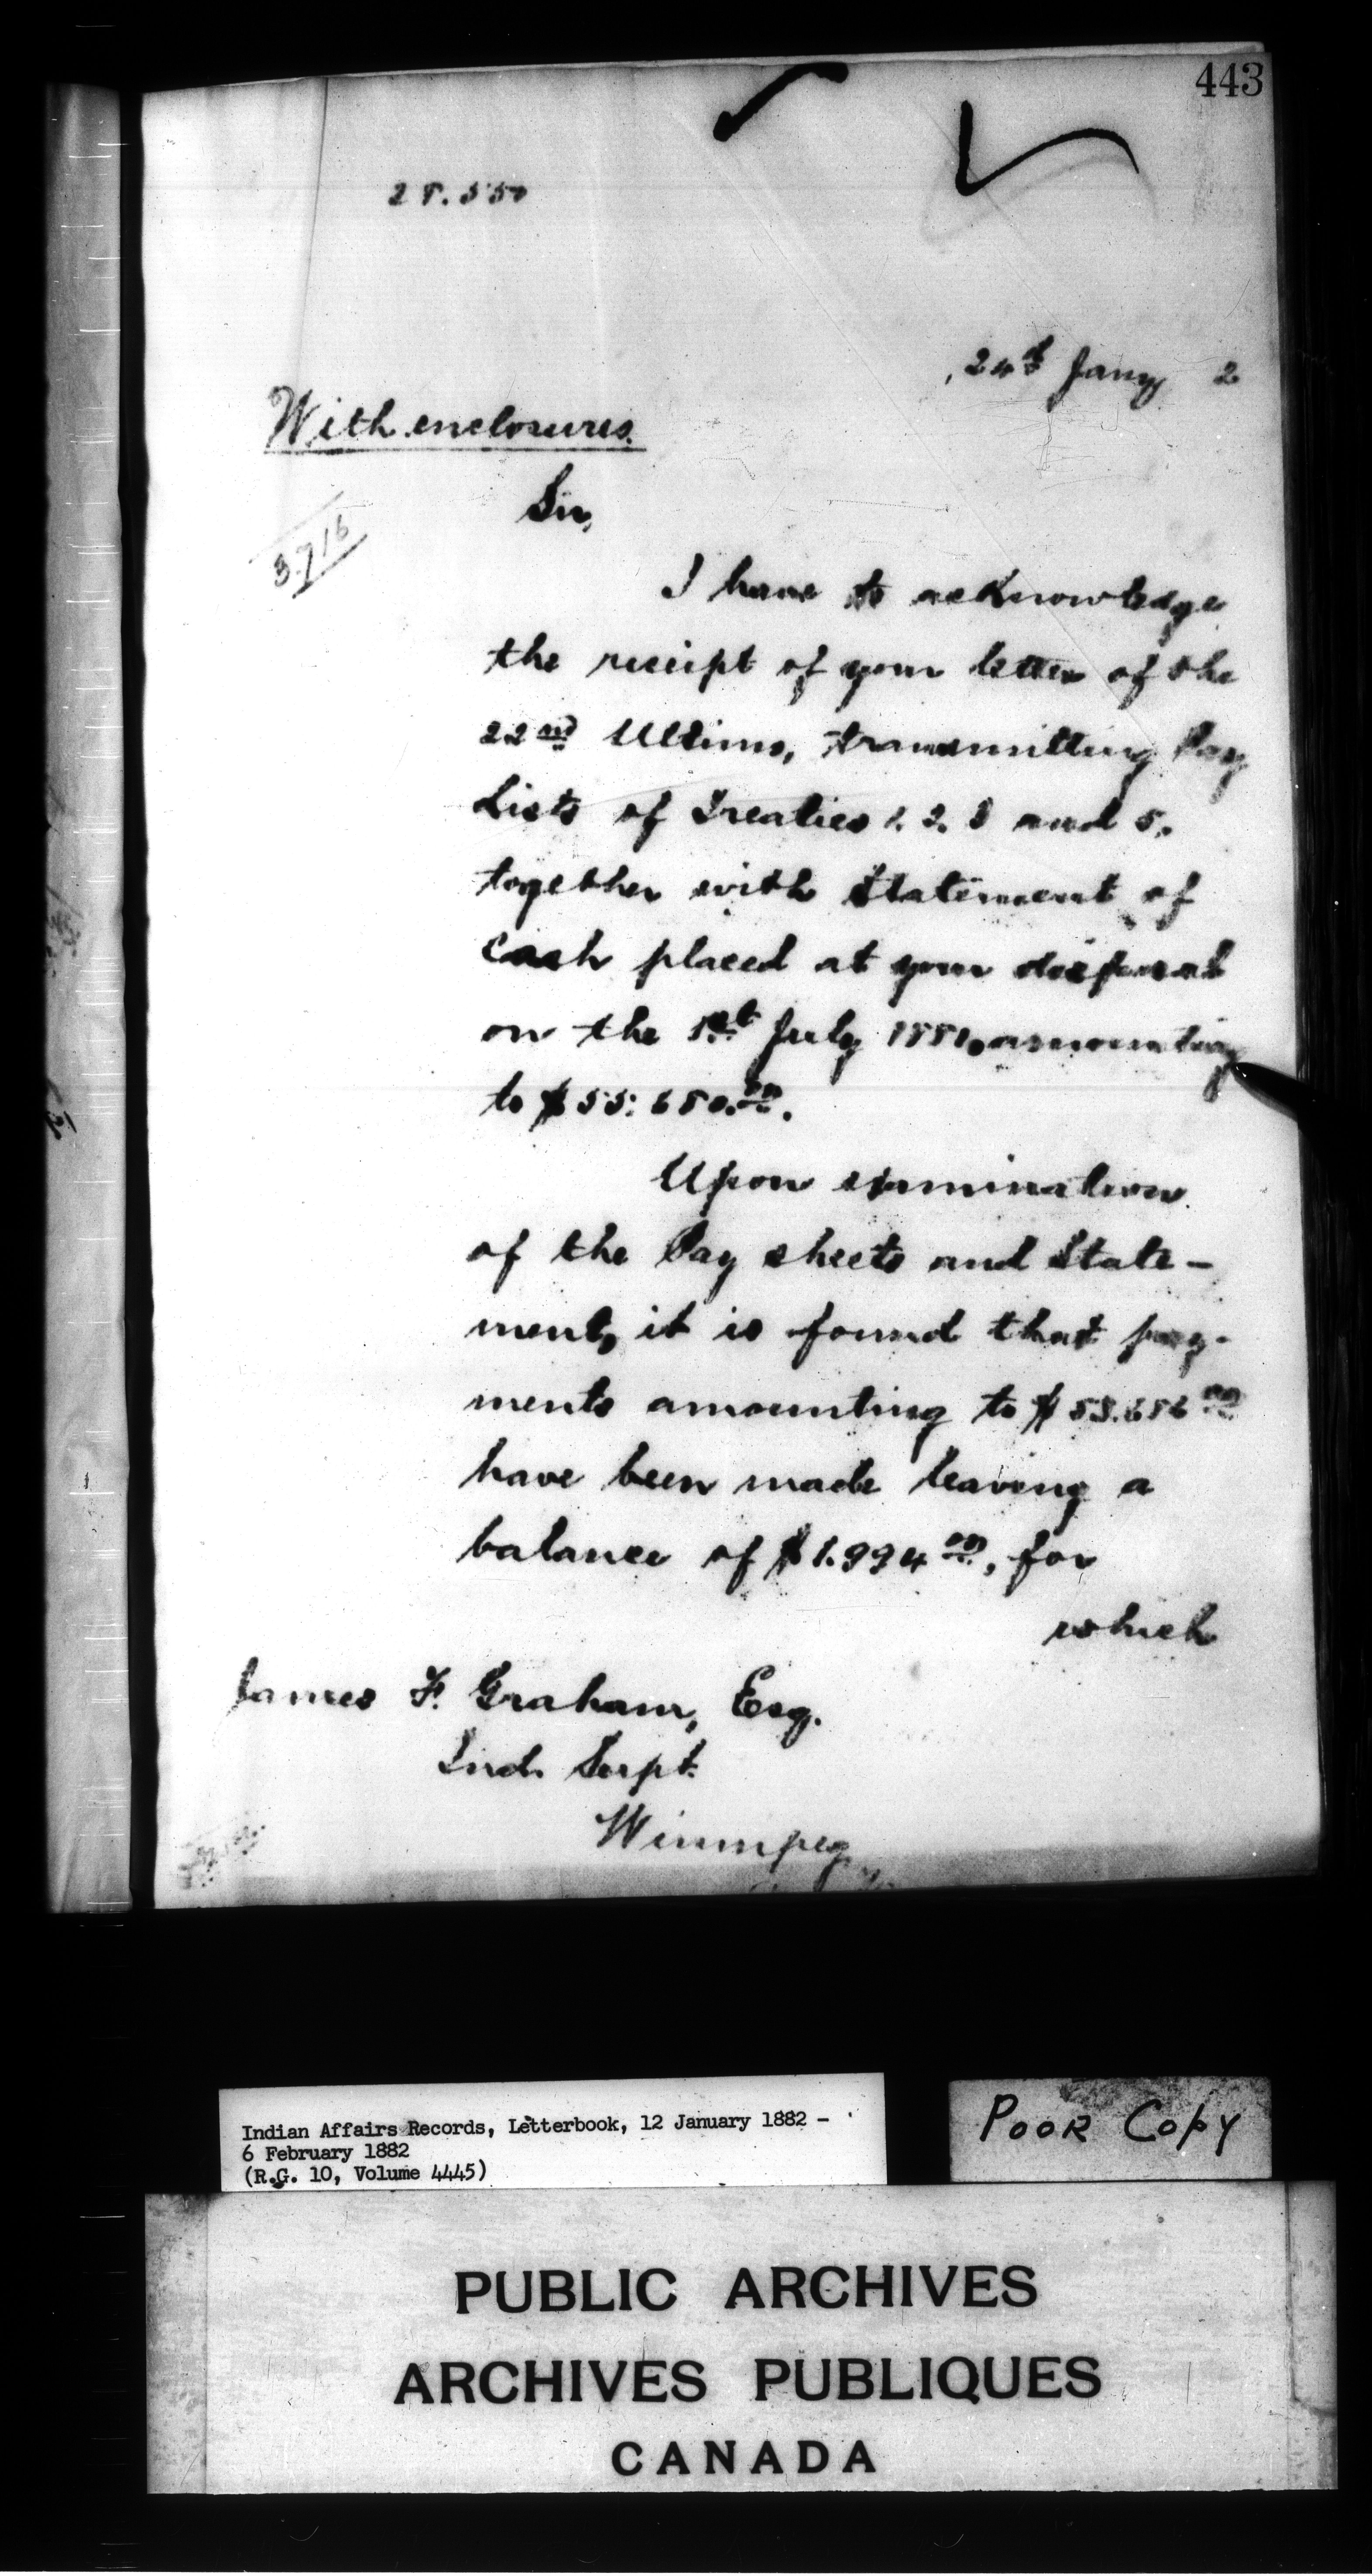 443
28.550
24th Jany 2
With enclosures.
3716
Sir,
I have to acknowledge
the receipt of your letter of the
22nd Ultimo, transmitting Pay
Lists of Treaties 1. 2. 3 and 5.
together with Statement of
Cash placed at your disposal
on the 1st July 1881, amounting
to $55.680.00.
Upon examination
of the Pay sheets and State-
ment, it is found that pay-
ments amounting to $53.686 00
have been made leaving a
balance of $1.994 00, for
which
James F. Graham, Esq.
Ind. Supt.
Winnipeg
Indian Affairs Records, Letterbook, 12 January 1882 -
6 February 1882
(R.G. 10, Volume 4445)
POOR COPY
PUBLIC ARCHIVES
ARCHIVES PUBLIQUES
CANADA